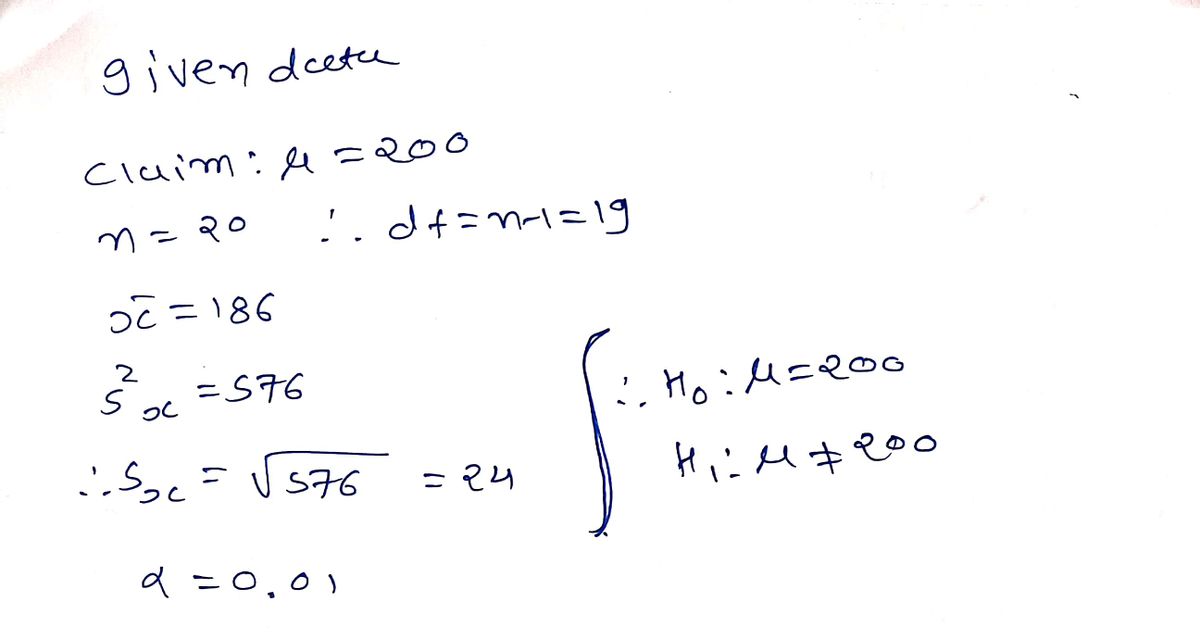 given data
Claim: μ = 200
n = 20 ∴ df = n-1 = 19
x̄ = 186
s²x = 576
∴ Sx = √576 = 24
α = 0.01
∴ H₀: μ = 200
H₁: μ ≠ 200